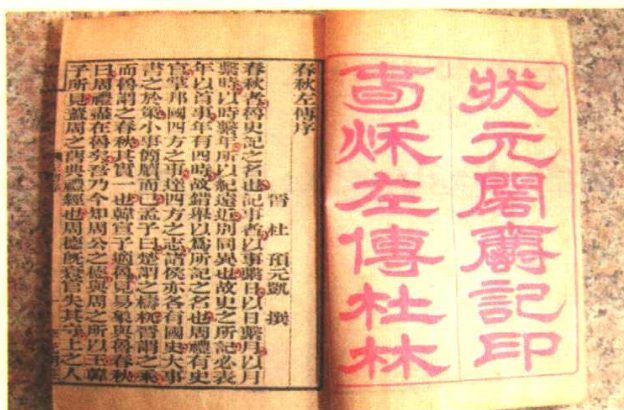 狀元閣爵記印
旾秌左傳杜林
春秋左傳序
晉 杜 預元凱 撰
春秋者魯史記之名也記事者以事繫日以日繫月以月
繫時以時繫年所以紀遠近別同異也故史之所記必表
年以首事年有四時故錯舉以爲所記之名也周禮有史
官掌邦國四方之事達四方之志諸侯亦各有國史大事
書之於策小事簡牘而已孟子曰楚謂之檮杌晉謂之乘
而魯謂之春秋其實一也韓宣子適魯見易象與魯春秋
曰周禮盡在魯矣吾乃今知周公之德與周之所以王韓
子所見蓋周之舊典禮經也周德旣衰官失其守上之人